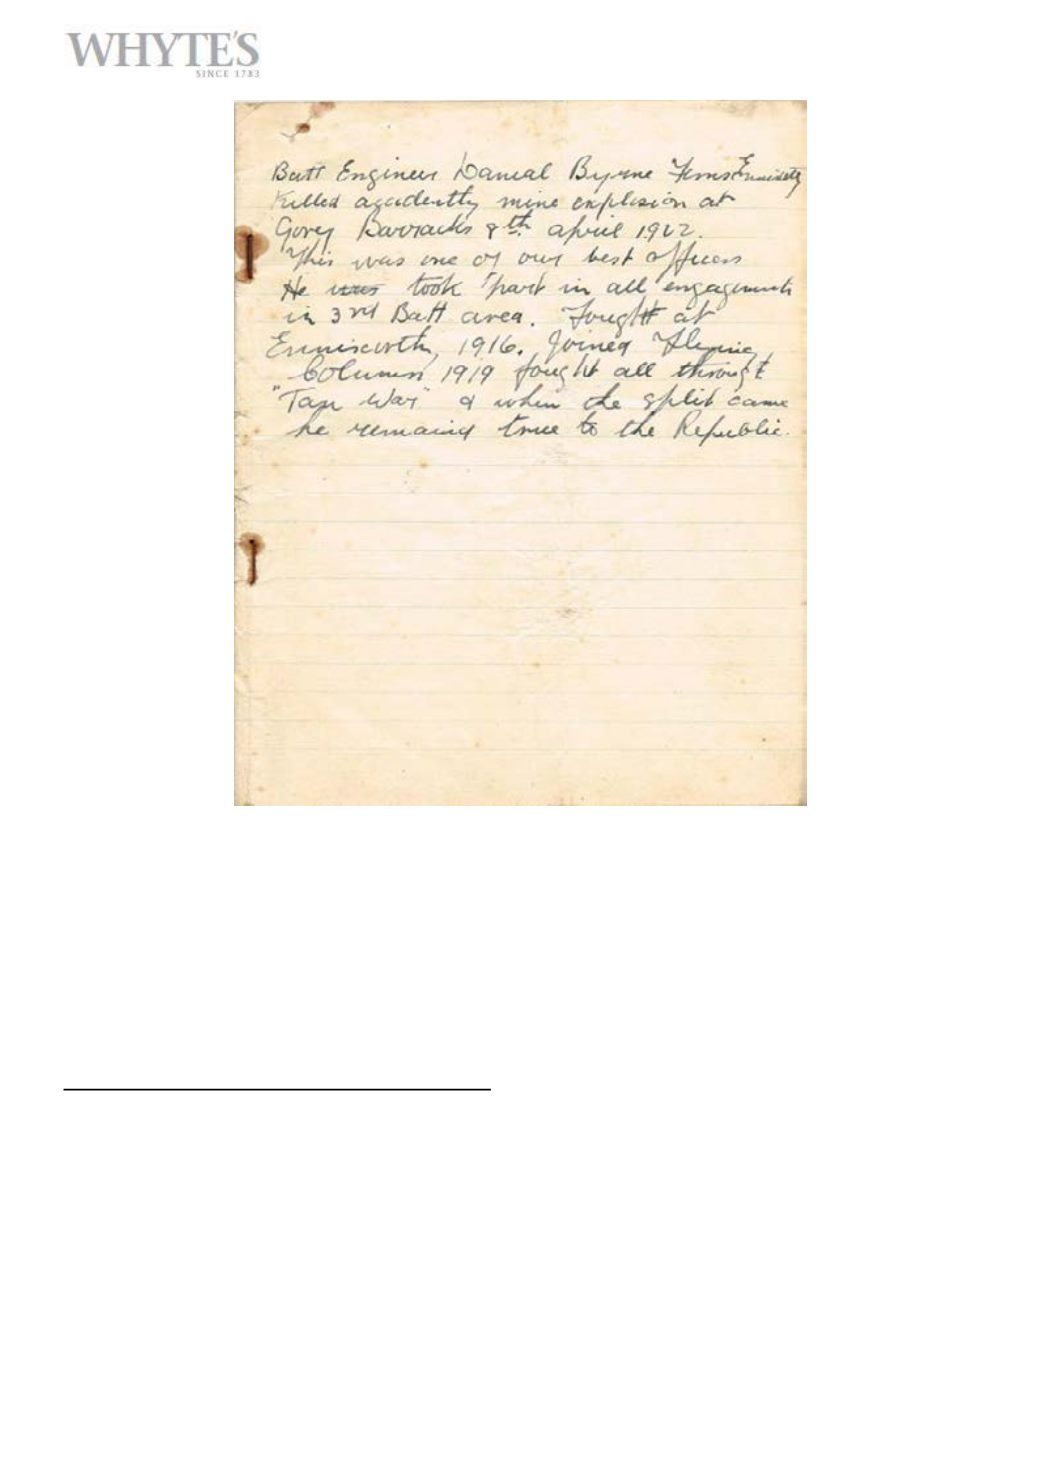 WHYTE'S
SINCE 1783
Batt Engineer Danial Byrne Ferns Enniscorthy
Killed accidently mine explosion at
Gorey Barracks 8th april 1922.
This was one of our best officers
He was took part in all engagements
in 3rd Batt area. Fought at
Enniscorthy, 1916. Joined Flying
Column 1919 fought all through
"Tan War" & when the split came
he remained true to the Republic.